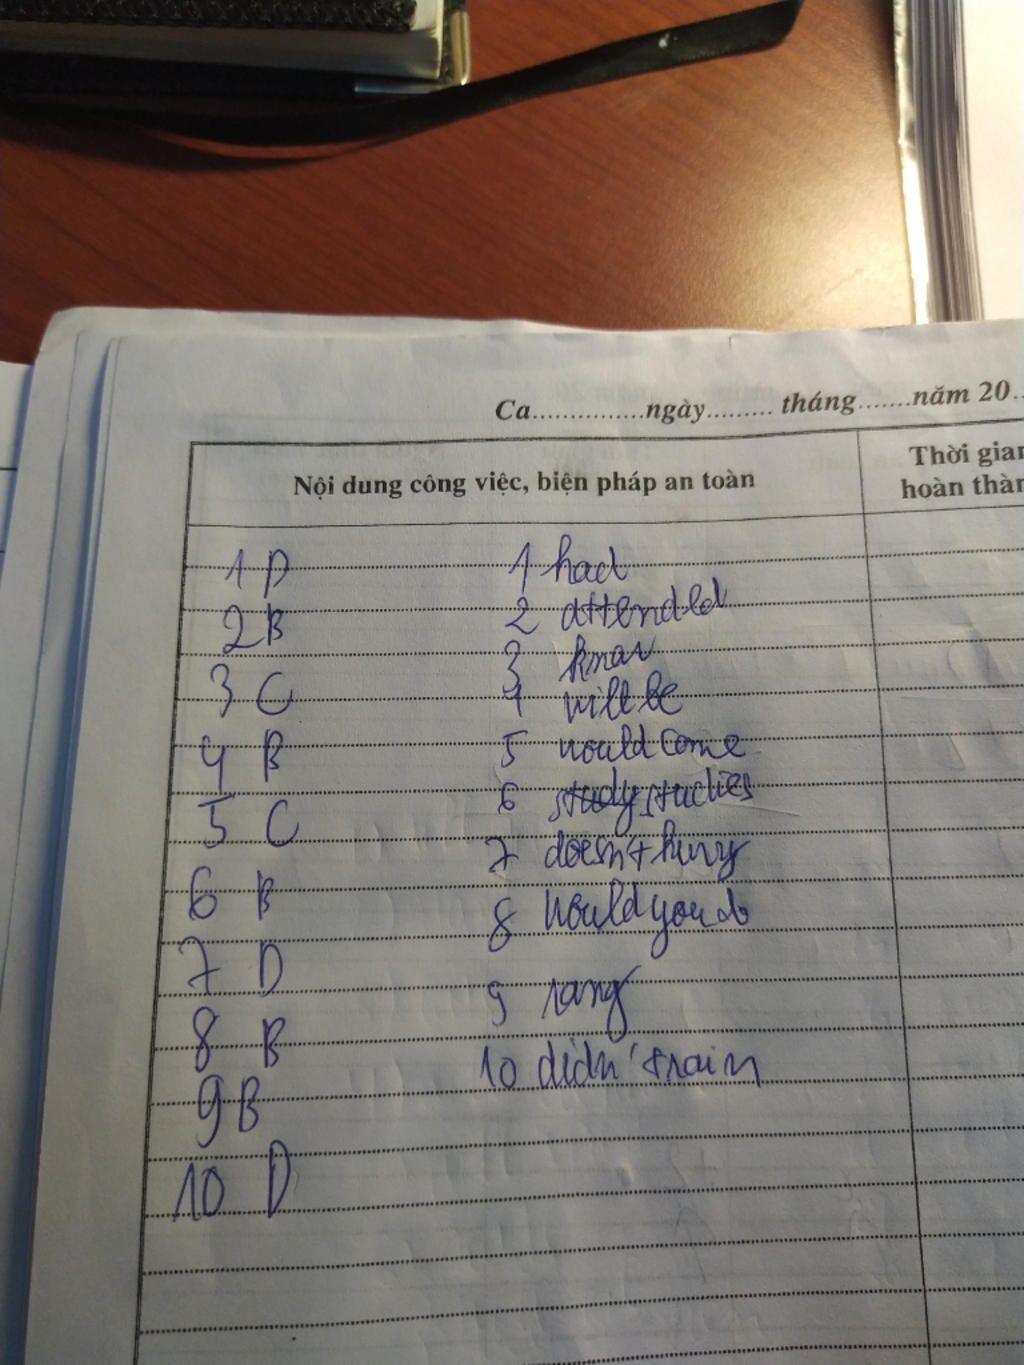 Ca...............ngày......... tháng.......năm 20..
Nội dung công việc, biện pháp an toàn
Thời gian
hoàn thàn
1 D
2 B
3 C
4 B
5 C
6 B
7 D
8 B
9 B
10 D
1 had
2 attended
3 know
4 will be
5 would come
6 study studies
7 doesn't hurry
8 Would you do
9 rang
10 didn't rain